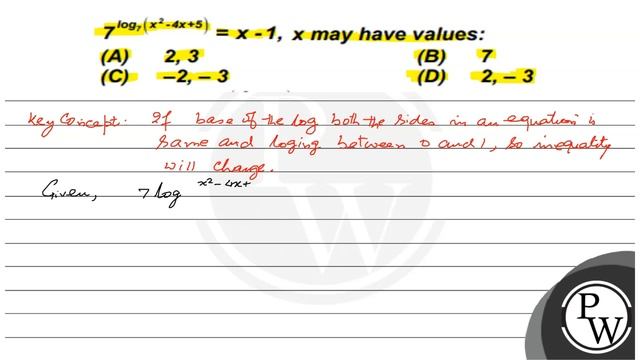 7^log₇(x²-4x+5) = x - 1, x may have values:
(A) 2, 3 (B) 7
(C) −2, − 3 (D) 2, − 3
Key Concept. If base of the log both the sides in an equation is
same and loging between 0 and 1, so inequality
will change.
Given, 7 log x² - 4x+
P
W